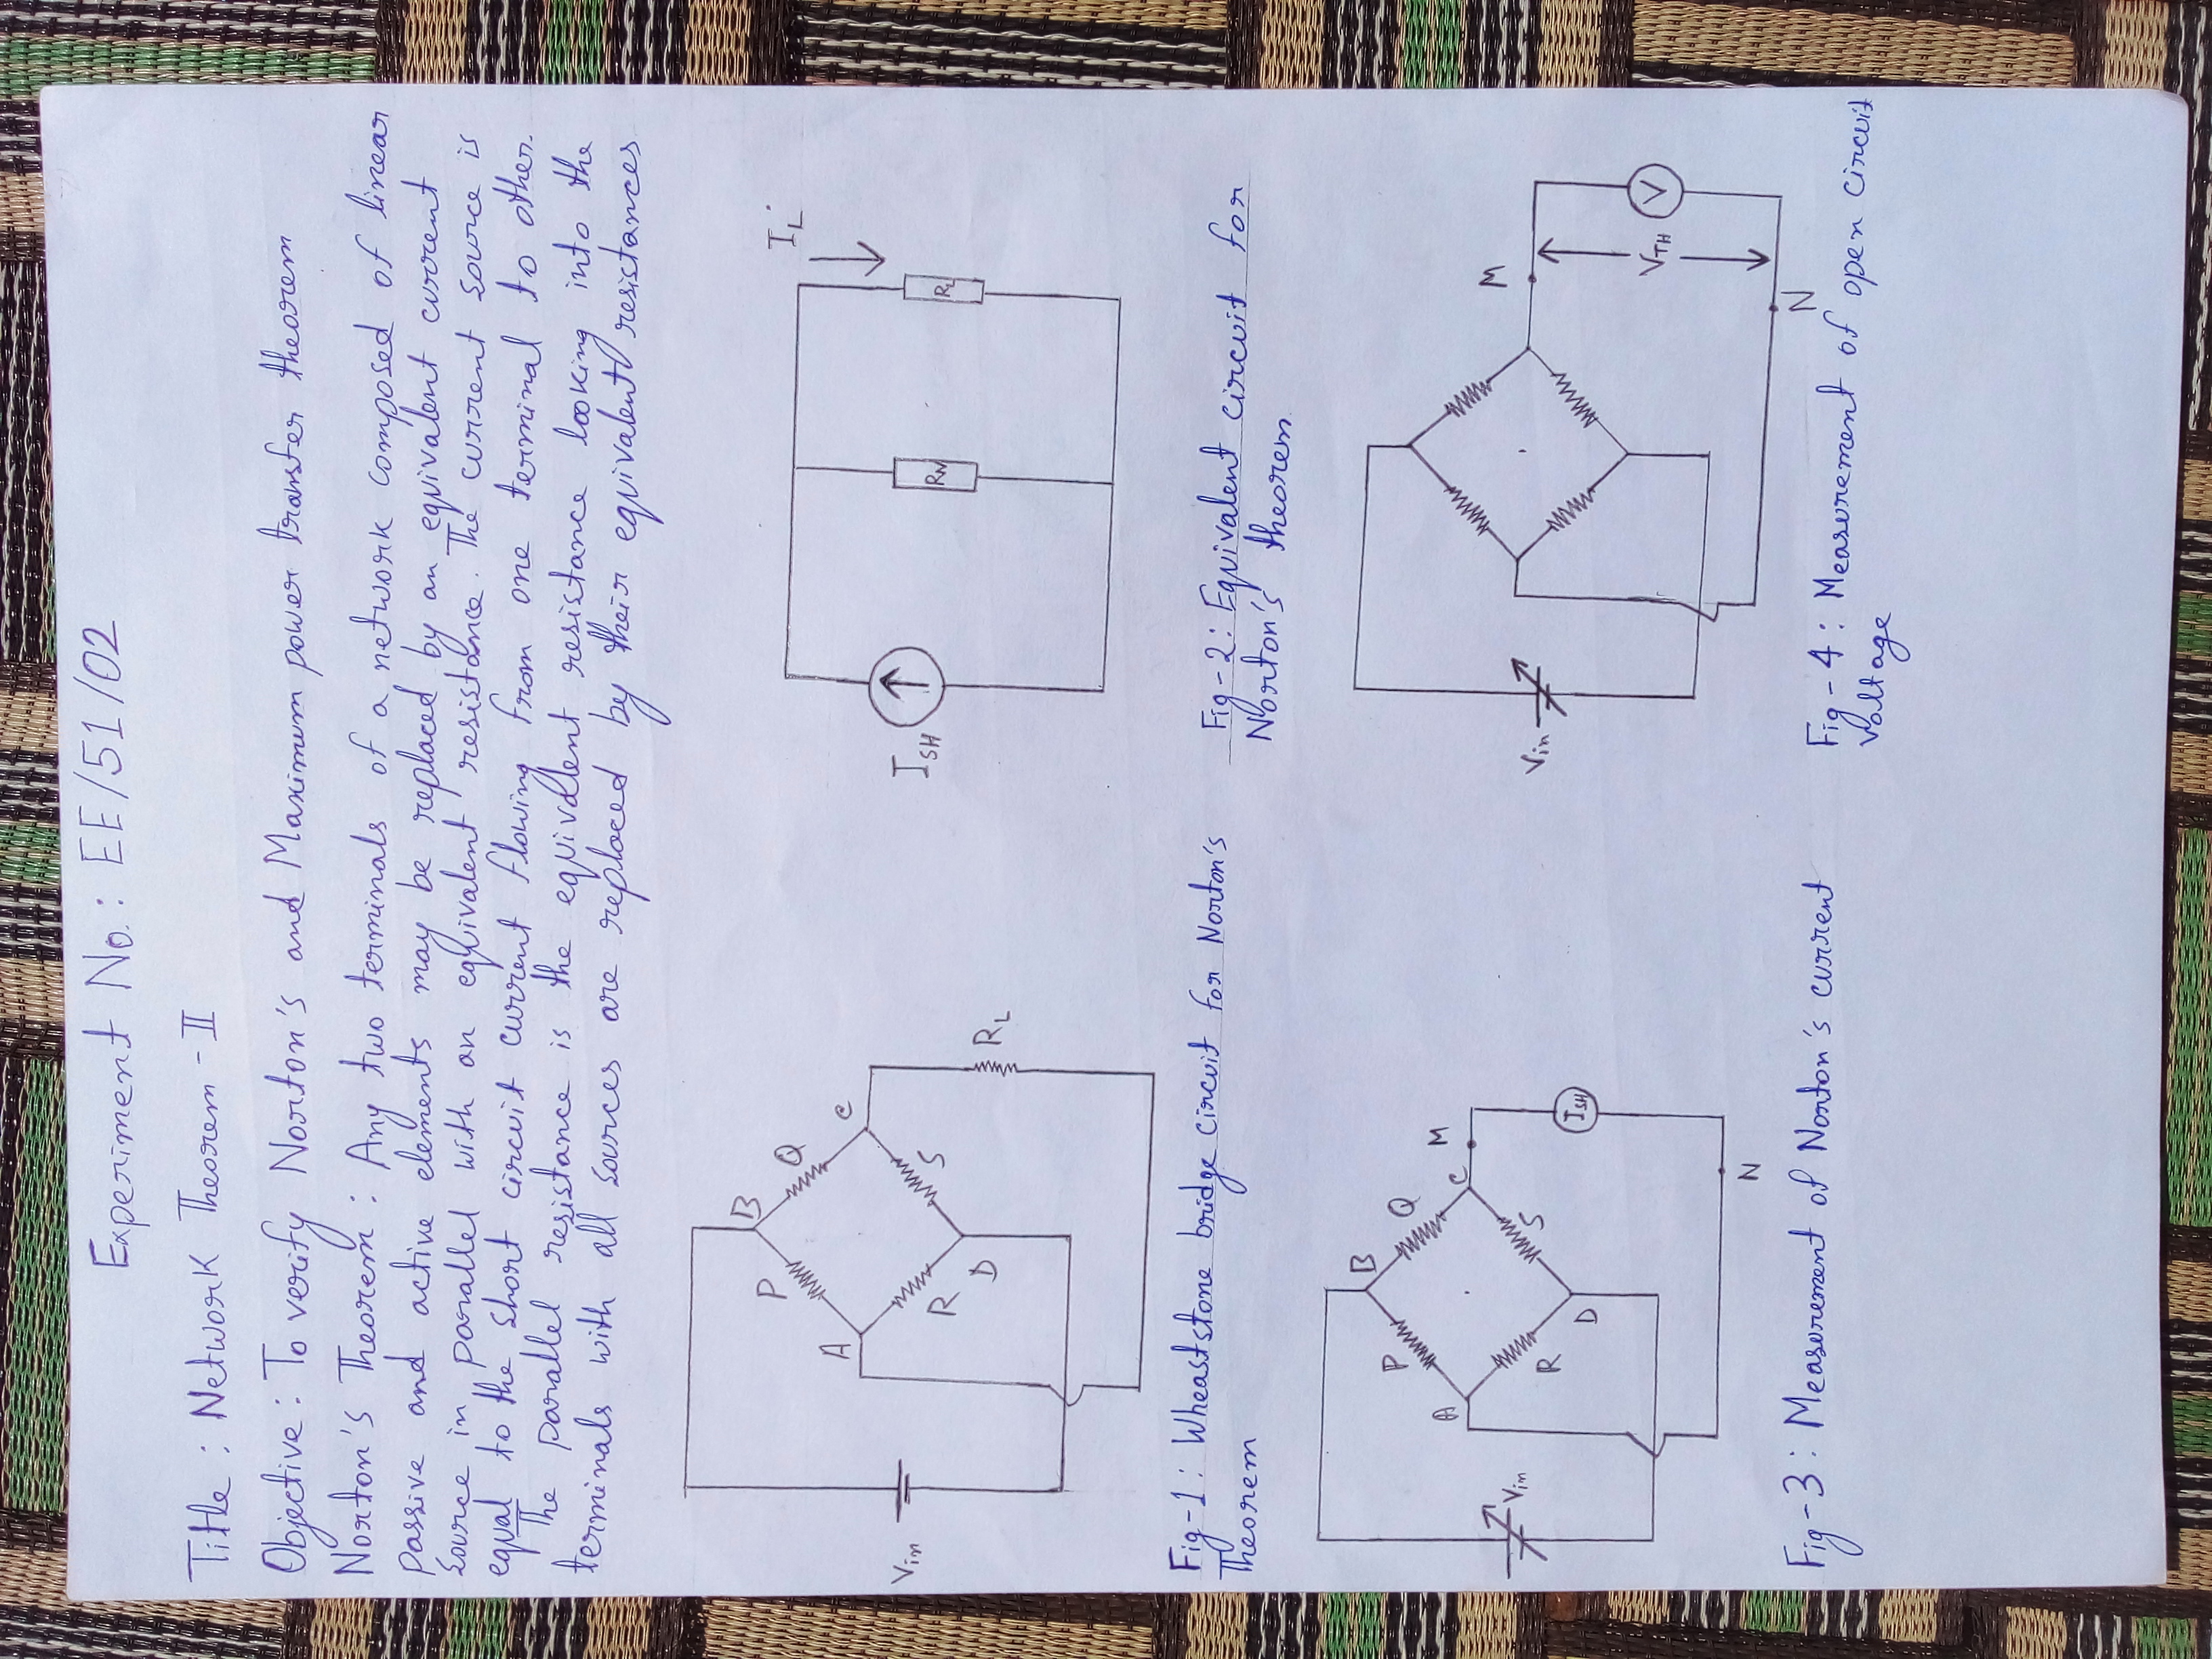 Experiment No.: EE/51/02
Title : Network Theorem - II
Objective : To verify Norton's and Maximum power transfer theorem
Norton's Theorem : Any two terminals of a network composed of linear
passive and active elements may be replaced by an equivalent current
source in parallel with an equivalent resistance. The current source is
equal to the short circuit current flowing from one terminal to other.
The parallel resistance is the equivalent resistance looking into the
terminals with all sources are replaced by their equivalent resistances
B
P
Q
A
C
Vin
R
S
D
RL
IL
ISH
RN
RL
Fig-1: Wheaststone bridge circuit for Norton's
Theorem
Fig-2: Equivalent circuit for
Norton's theorem
B
P
Q
A
C
M
Vin
R
S
D
ISH
N
M
Vin
VTH
V
N
Fig-3: Measurement of Norton's current
Fig-4: Measurement of open circuit
voltage